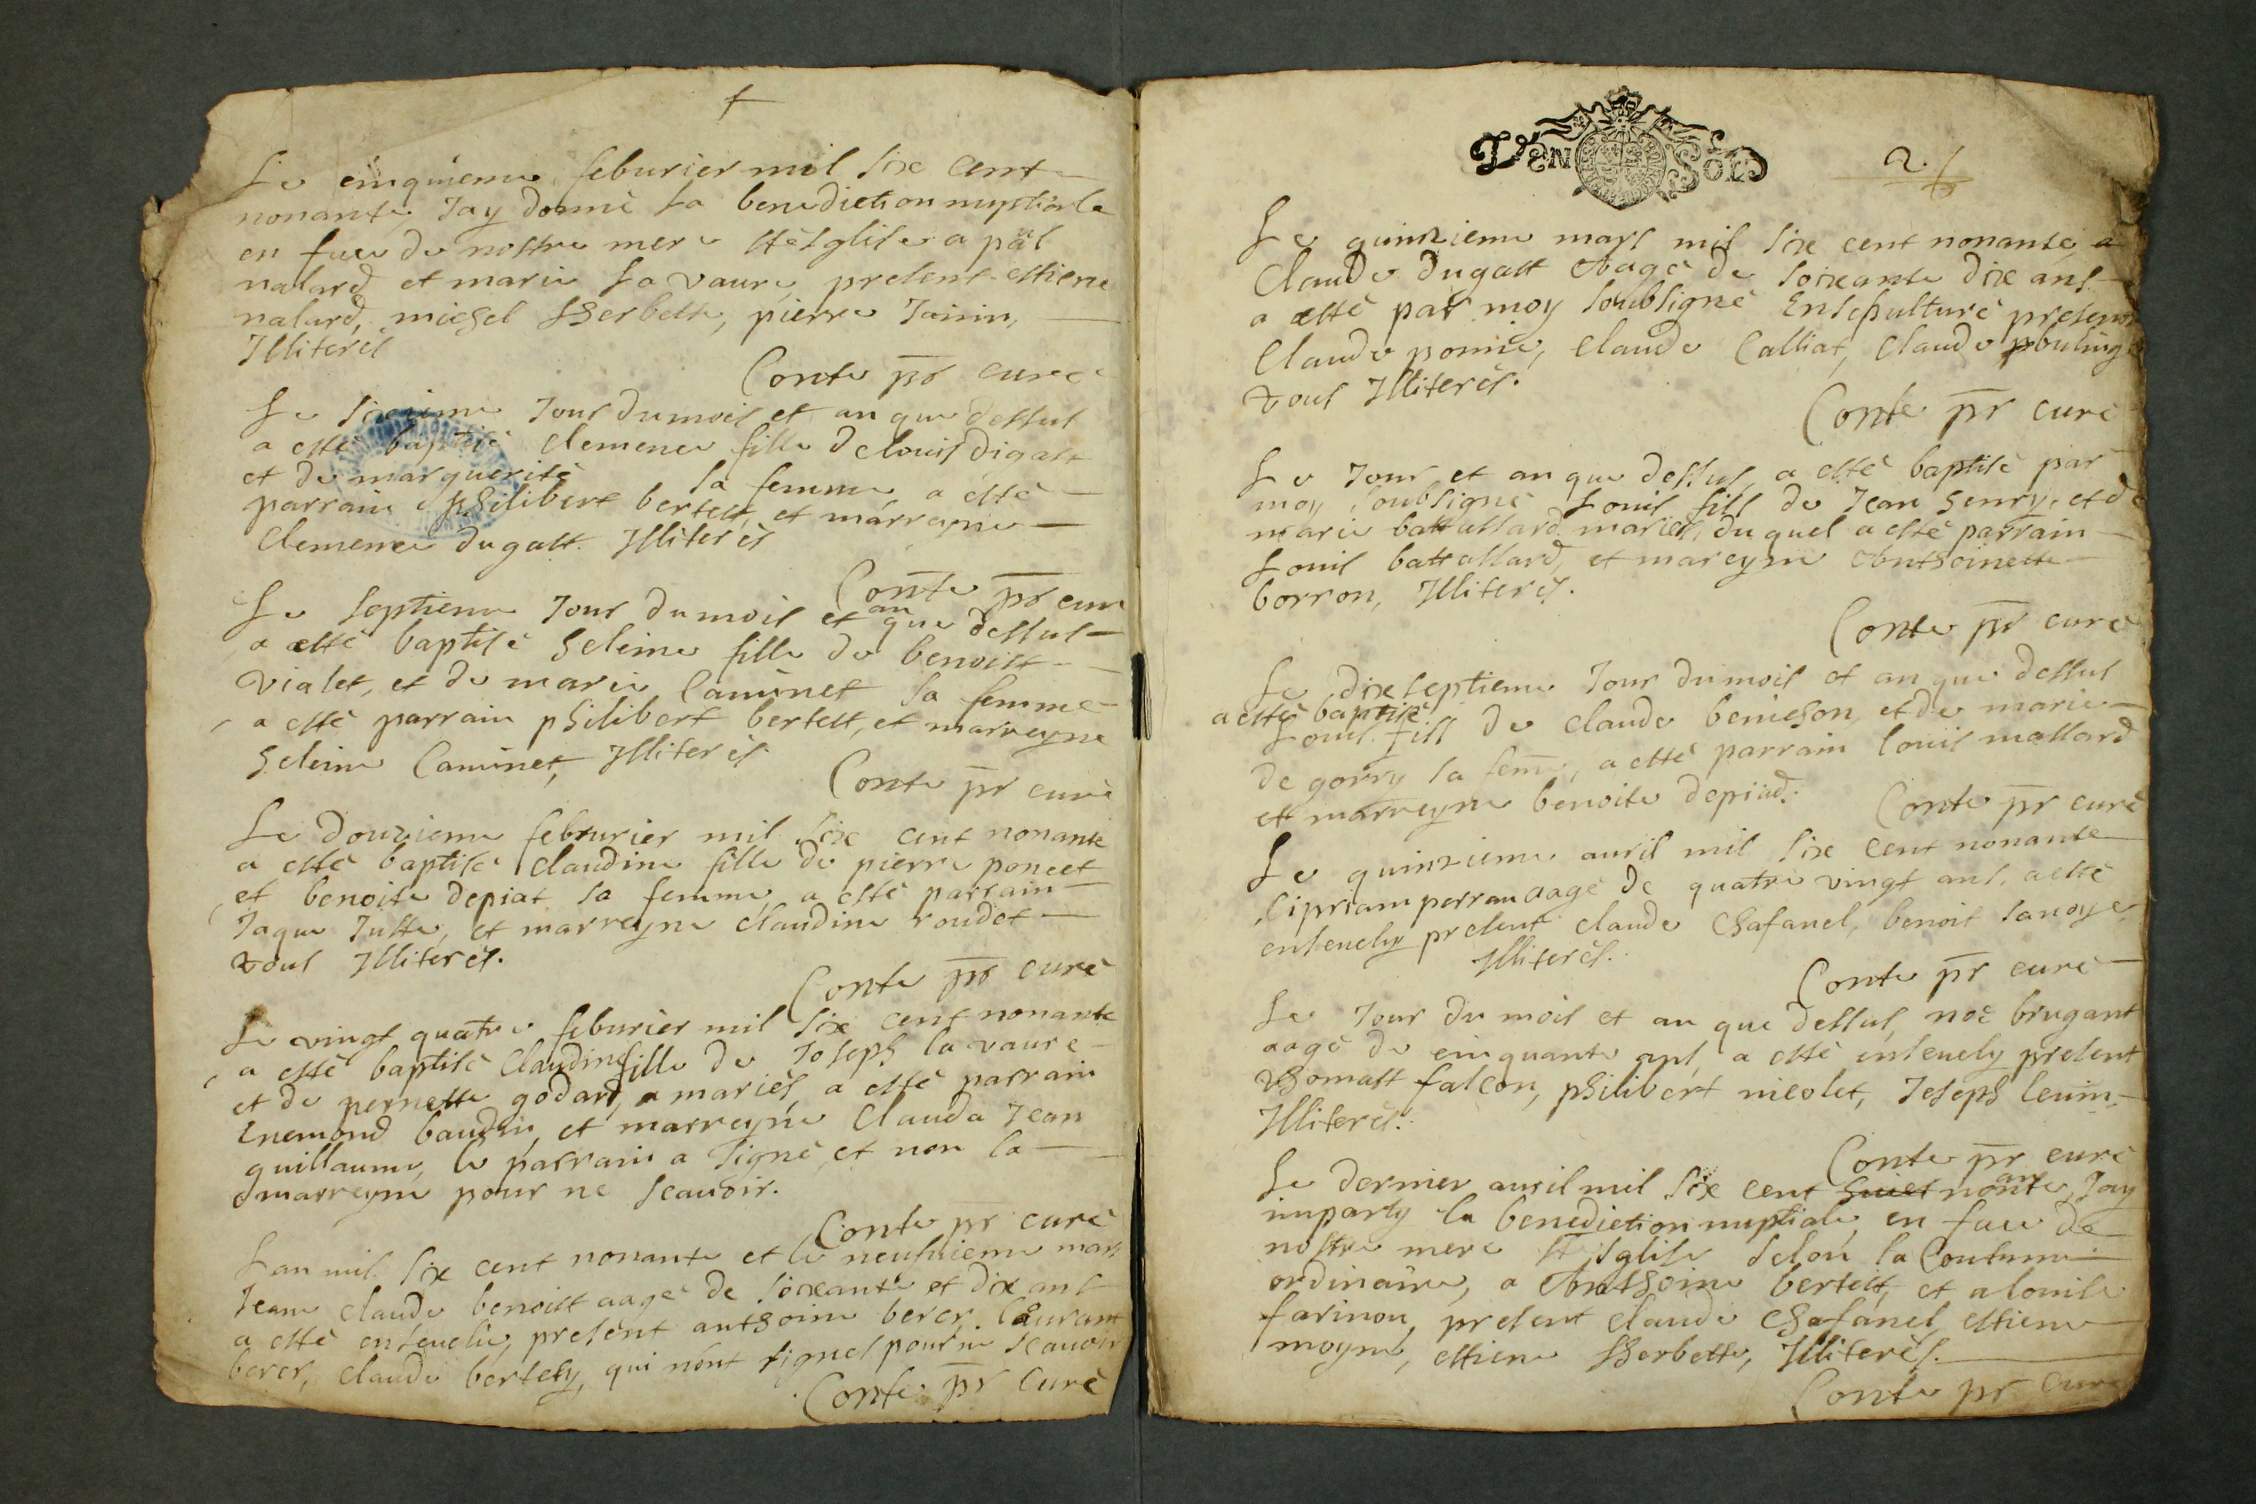 Le cinquieme feburier mil six cent
nonante, Jay donnè la benediction nuptiale
en face de nostre mere ste esglise a pāl
nalard et marie la vaure, present estiene
nalard, michel sherbette, pierre Janin,
Illiterès
Conte pr curè
Le sixieme Jour du mois et an que dessus
a esté baptisè Clemence fille de louis digast
et de marguerite sa femme a estè
parrain philibert bertett, et marreyne
Clemence dugast. Illiterès
Conte pr cure
Le septieme Jour du mois et an que dessus
a estè baptisè heleine fille de benoist
vialet, et de marie Caminet sa femme
a estè parrain philibert bertett, et marreyne
heleine Caminet, Illiterès
Conte pr curè
Le douzieme feburier mil six cent nonante
a estè baptisè Claudine fille de pierre poncet
et benoite depiat sa femme a estè parrain
Jaque Juste, et marreyne Claudine roudet
tous Illiterès.
Conte pr curè
Le vingt quatre feburier mil six cent nonante
a estè baptisè Claudine fille de Joseph la vaure
et de pernette godard, mariès, a estè parrain
Enemond baudin, et marreyne Clauda Jean
guillaume, le parrain a signè, et non la
marreyne pour ne scauoir.
Conte pr curè
Lan mil six cent nonante et le neufuieme mars
Jean claude benoist aagè de soixante et dix ans
a estè enseueli, present anthoine berer, laurant
berer, claude bertety, qui nont signes pour ne scauoir
Conte pr Curè
L'EN SOLS
2
Le quinzieme mars mil six cent nonante, a
Claude dugast aagè de soixante dix ans
a estè par moy soubsignè Ensepulturè present
Claude pomie, claude Calliat, Claude
tous Illiterès.
Conte pr curè
Le Jour et an que dessus a estè baptisè par
moy soubsignè Louis fils de Jean henry, et de
marie battallard mariès, du quel a estè parrain
Louis battallard, et mareyne Anthoinette
borron, Illiterès.
Conte pr curè
Le dix septieme Jour du mois et an que dessus
a estè baptisè
Louis fils de claude benichon et de marie
de gorry sa fem̄e, a estè parrain louis mallard
et marreyne benoite depiad.
Conte pr curè
Le quinzieme auril mil six cent nonante
Ciprian perrau aagè de quatre vingt ans, a estè
enseuely present claude Chafanel, benoit lanoye
Illiterès.
Conte pr curè
Le Jour du mois et an que dessus, noè brugant
aagè de cinquante ans, a estè enseuely present
thomast falcon, philibert nicolet, Joseph leuin,
Illiterès.
Conte pr curè
Le dernier auril mil six cent huict nonante, Jay
imparty la benediction nuptiale en face de
nostre mere ste Esglise selon la Coutume
ordinaire, a Anthoine bertett, et a louise
farinon, present claude Chafanel, estiene
moyne, estiene sherbette, Illiterès.
Conte pr curè